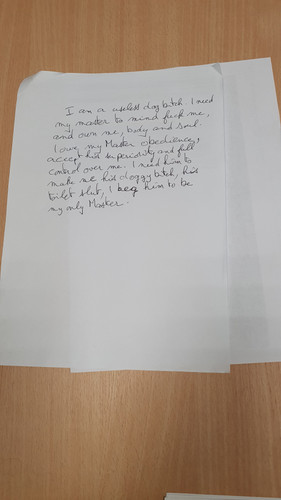 I am a useless dog bitch I need
my master to mind fuck me,
and own me, body and soul.
I owe my Master obedience,
accept his superiority and full
control over me. I need him to
make me his doggy bitch, his
toilet slut, I beg him to be
my only Master.